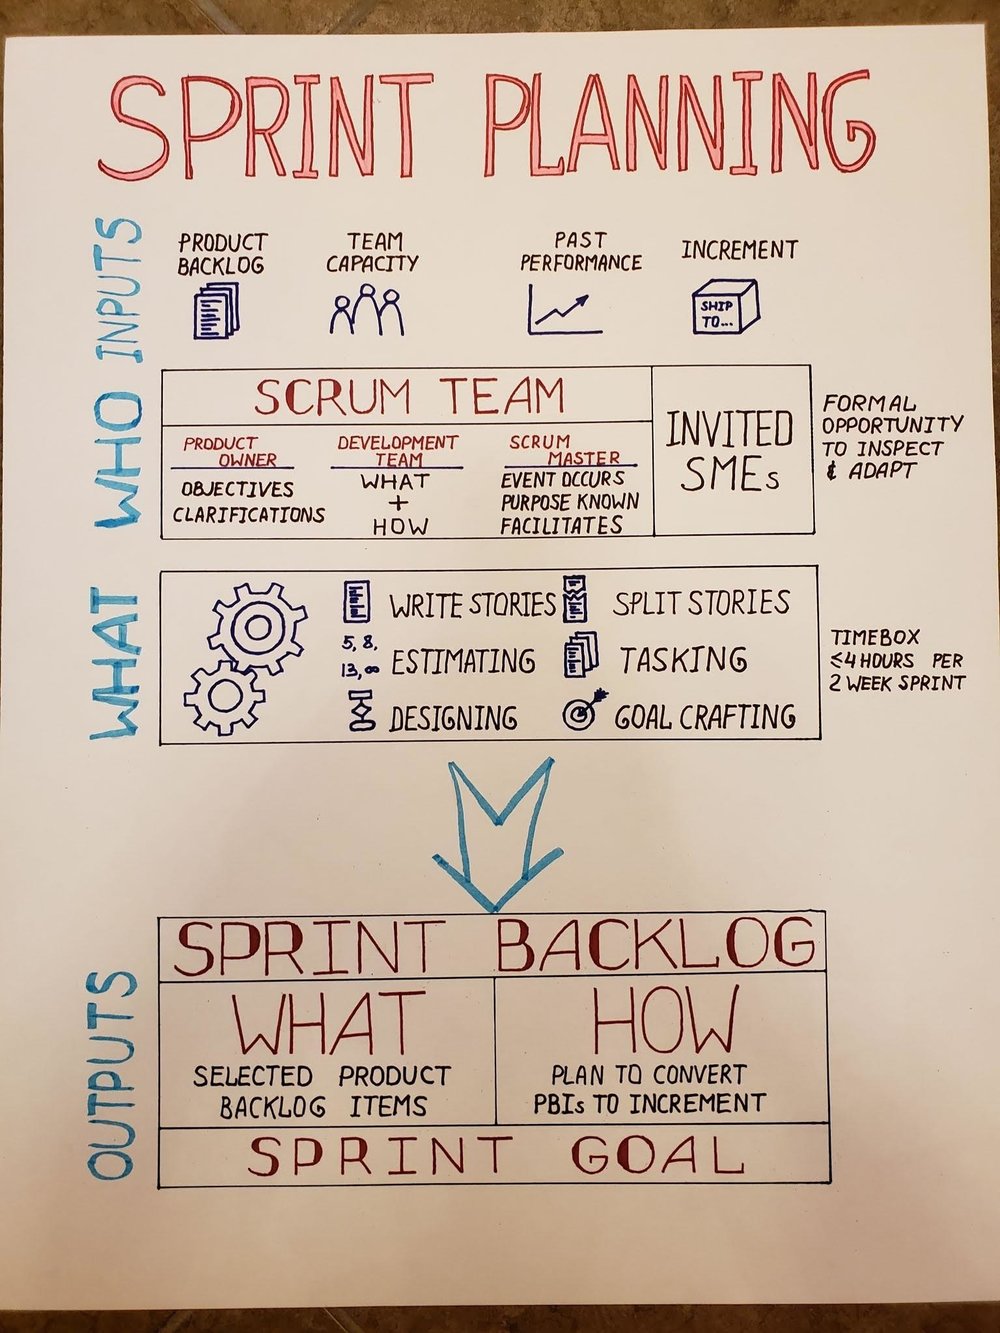 SPRINT PLANNING
INPUTS
PRODUCT
BACKLOG
TEAM
CAPACITY
PAST
PERFORMANCE
INCREMENT
SHIP
TO...
WHO
SCRUM TEAM
PRODUCT
OWNER
OBJECTIVES
CLARIFICATIONS
DEVELOPMENT
TEAM
WHAT
+
HOW
SCRUM
MASTER
EVENT OCCURS
PURPOSE KNOWN
FACILITATES
INVITED
SMEs
FORMAL
OPPORTUNITY
TO INSPECT
& ADAPT
WHAT
WRITE STORIES
SPLIT STORIES
5, 8,
13, ∞
ESTIMATING
TASKING
DESIGNING
GOAL CRAFTING
TIMEBOX
≤4 HOURS PER
2 WEEK SPRINT
OUTPUTS
SPRINT BACKLOG
WHAT
SELECTED PRODUCT
BACKLOG ITEMS
HOW
PLAN TO CONVERT
PBIs TO INCREMENT
SPRINT GOAL